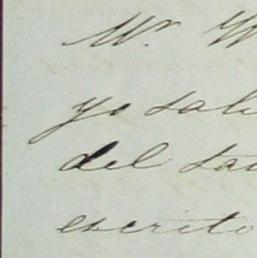 Mr. W
yo sal
del
escrito